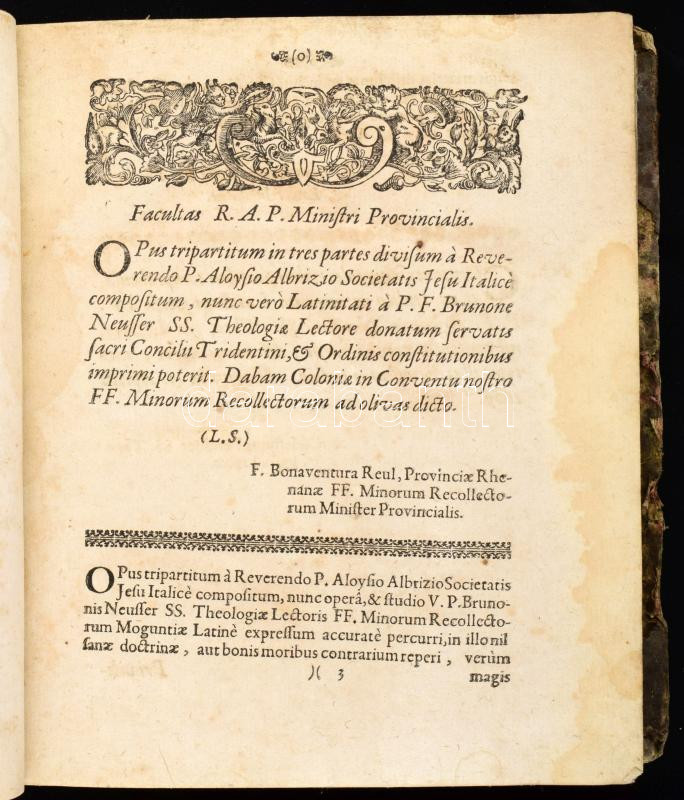 (o)
Facultas R. A. P. Miniſtri Provincialis.
OPus tripartitum in tres partes diviſum à Reve-
rendo P. Aloyſio Albrizio Societatis Jeſu Italicè
compoſitum, nunc verò Latinitati à P. F. Brunone
Neuſſer SS. Theologiæ Lectore donatum ſervatis
ſacri Concilii Tridentini, & Ordinis conſtitutionibus
imprimi poterit. Dabam Coloniæ in Conventu noſtro
FF. Minorum Recollectorum ad olivas dicto.
darabanth
(L.S.)
F. Bonaventura Reul, Provinciæ Rhe-
nanæ FF. Minorum Recollecto-
rum Miniſter Provincialis.
OPus tripartitum à Reverendo P. Aloyſio Albrizio Societatis
Jeſu Italicè compoſitum, nunc operâ, & ſtudio V. P. Bruno-
nis Neuſſer SS. Theologiæ Lectoris FF. Minorum Recollecto-
rum Moguntiæ Latinè expreſſum accuratè percurri, in illo nil
ſanæ doctrinæ, aut bonis moribus contrarium reperi, verùm
)( 3 magis